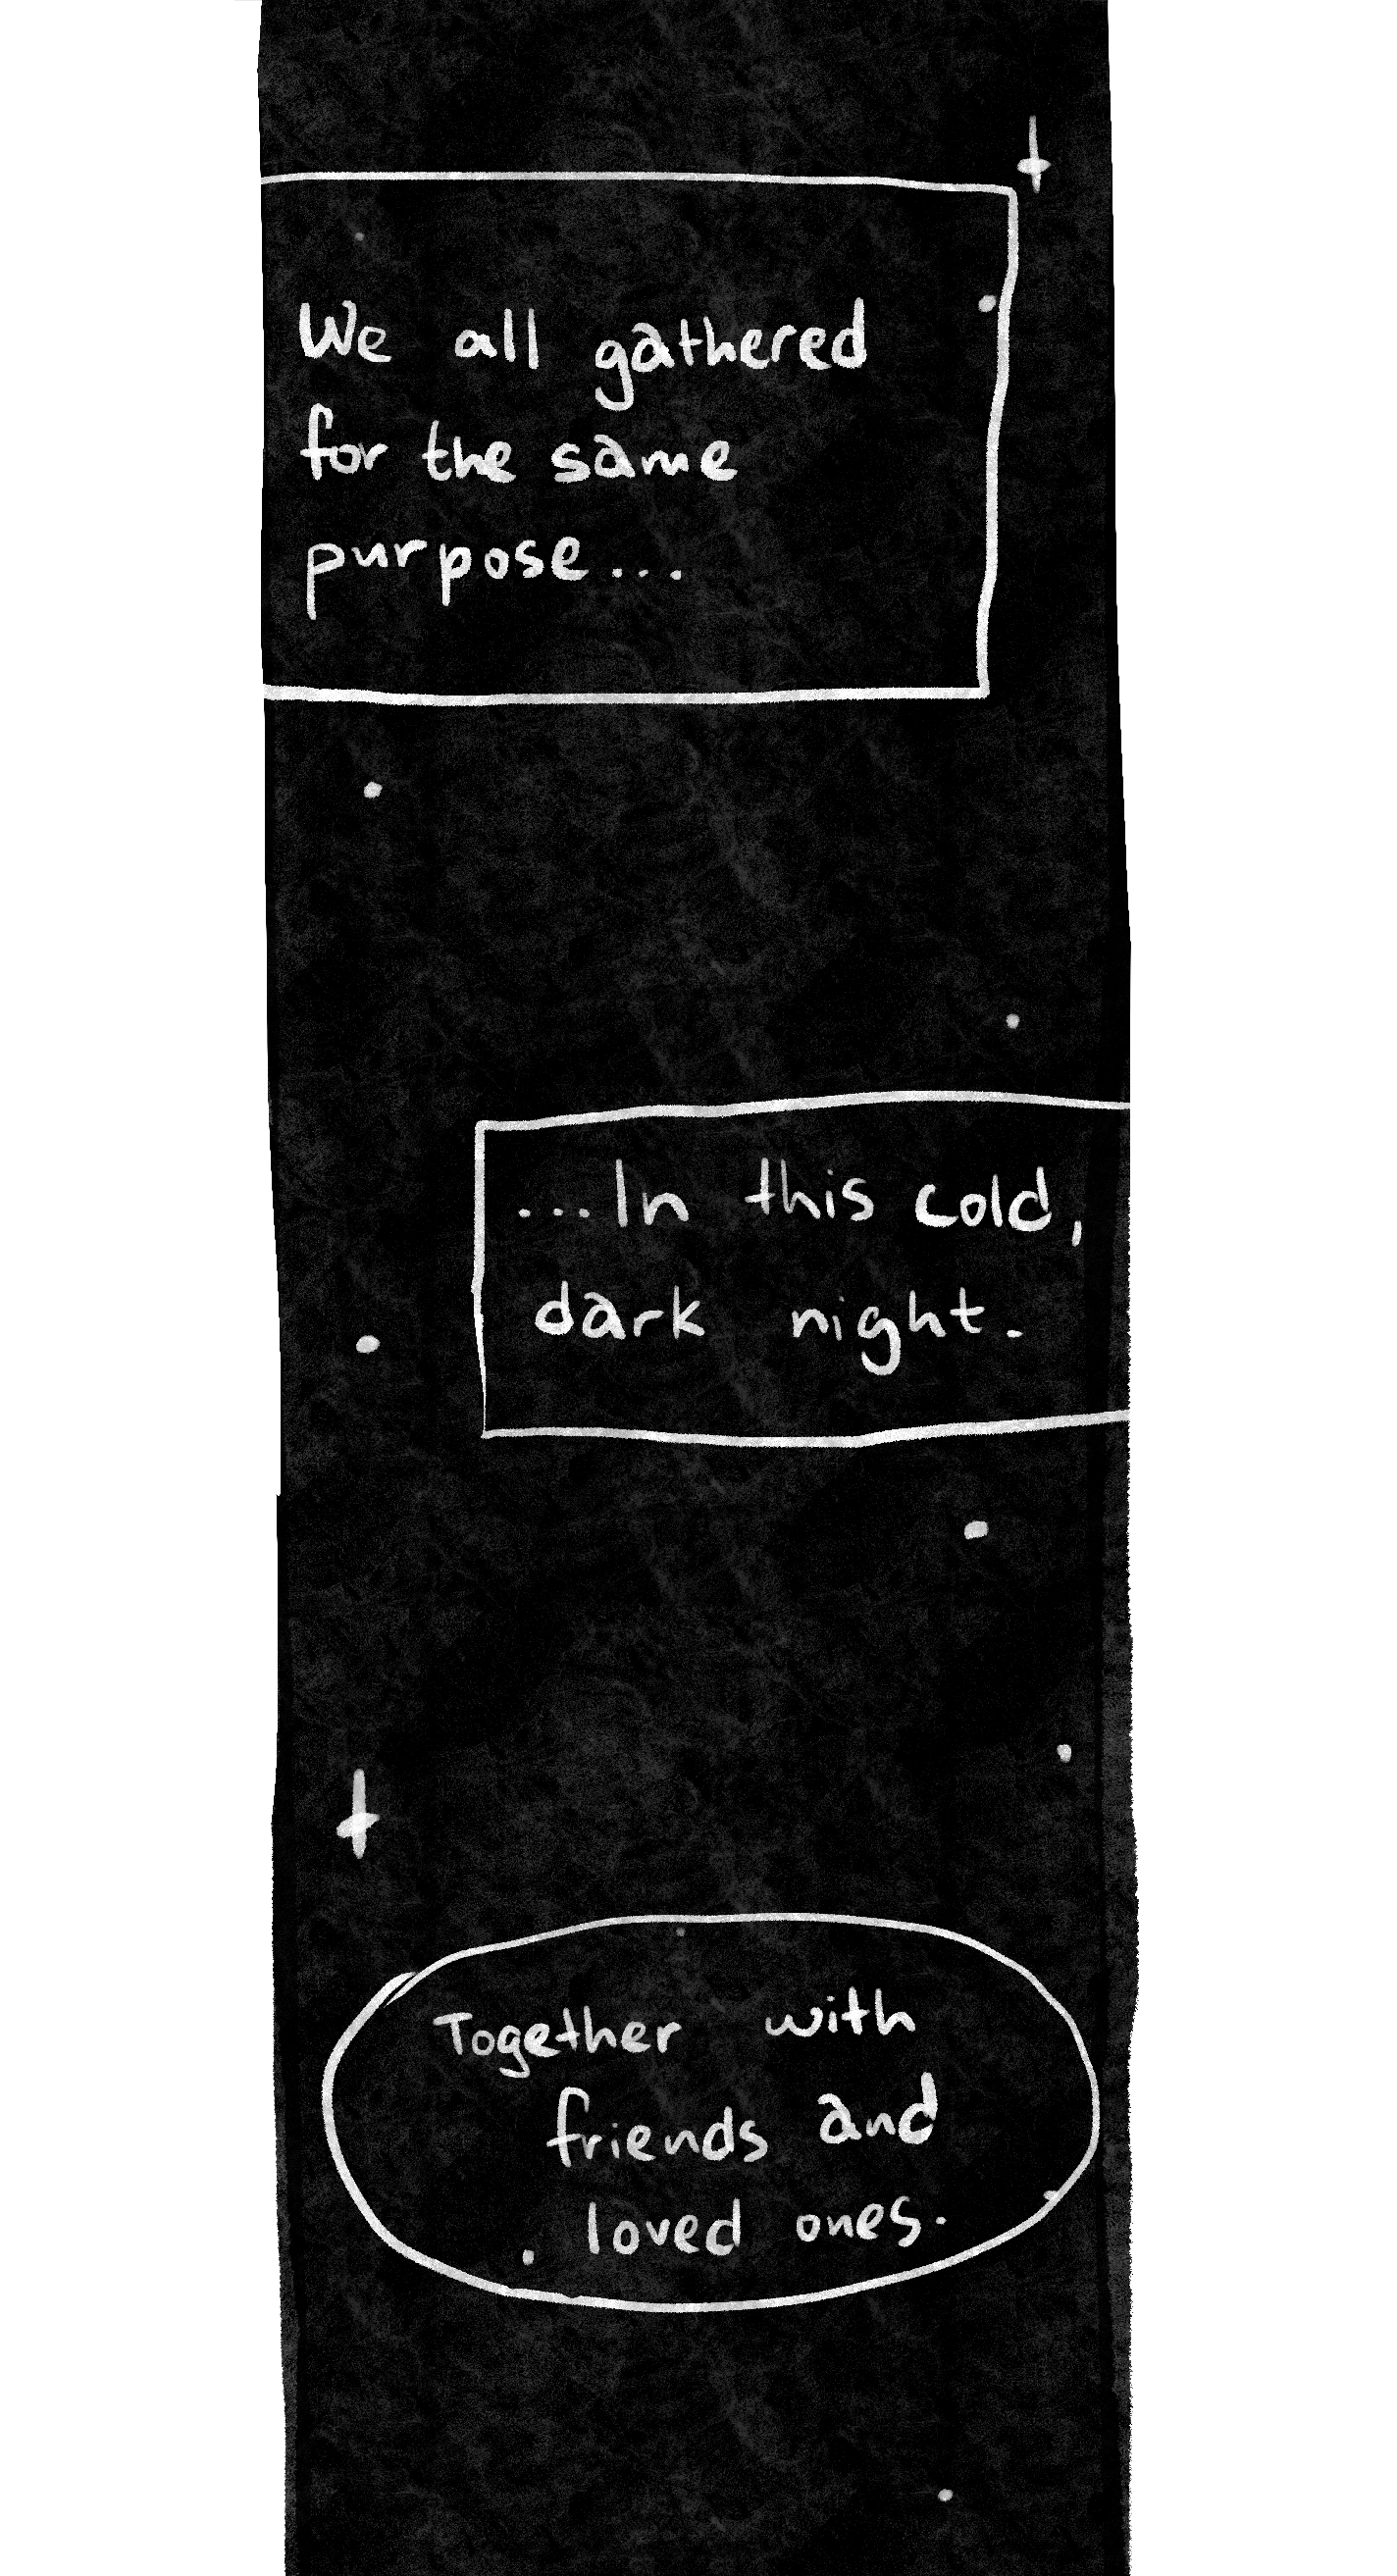 We all gathered
for the same
purpose...
...In this cold,
dark night.
Together with
friends and
loved ones.